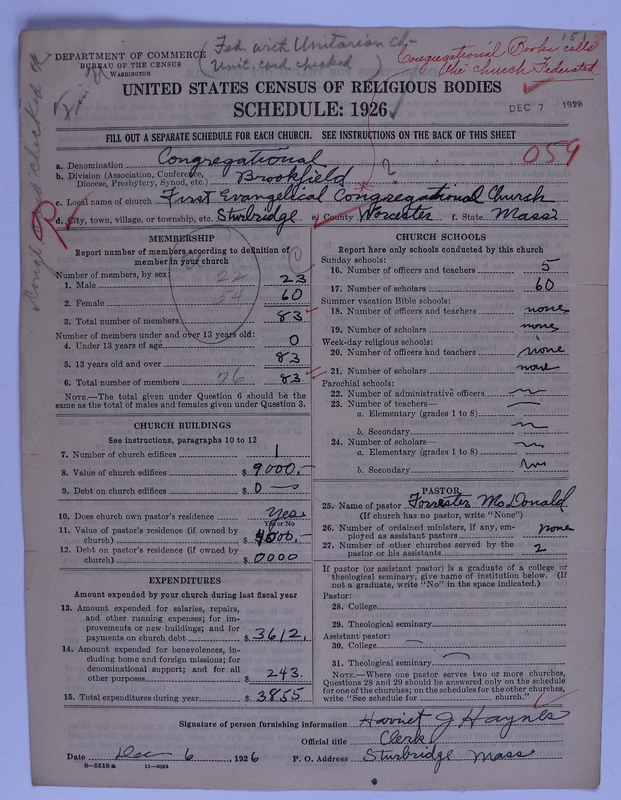 151
Fed. with Unitarian Ch-
Unit. card checked
Congregational Books calls
the church Federated
DEPARTMENT OF COMMERCE
BUREAU OF THE CENSUS
WASHINGTON
UNITED STATES CENSUS OF RELIGIOUS BODIES
SCHEDULE: 1926
DEC 7 1926
FILL OUT A SEPARATE SCHEDULE FOR EACH CHURCH. SEE INSTRUCTIONS ON THE BACK OF THIS SHEET
059
a. Denomination Congregational
b. Division (Association, Conference, Diocese, Presbytery, Synod, etc.) Brookfield ?
c. Local name of church First Evangelical Congregational Church
d. City, town, village, or township, etc. Sturbridge e. County Worcester f. State Mass
MEMBERSHIP
Report number of members according to definition of
member in your church
Number of members, by sex:
1. Male 22 23
2. Female 54 60
3. Total number of members 83
Number of members under and over 13 years old:
4. Under 13 years of age 0
5. 13 years old and over 83
6. Total number of members 76 83
NOTE.—The total given under Question 6 should be the
same as the total of males and females given under Question 3.
CHURCH BUILDINGS
See instructions, paragraphs 10 to 12
7. Number of church edifices 1
8. Value of church edifices $ 9000.-
9. Debt on church edifices $ 0
10. Does church own pastor's residence Yes
Yes or No
11. Value of pastor's residence (if owned by
church) $ 4000.-
12. Debt on pastor's residence (if owned by
church) $ 0000
EXPENDITURES
Amount expended by your church during last fiscal year
13. Amount expended for salaries, repairs,
and other running expenses; for im-
provements or new buildings; and for
payments on church debt $ 3612.
14. Amount expended for benevolences, in-
cluding home and foreign missions; for
denominational support; and for all
other purposes $ 243.
15. Total expenditures during year $ 3855
CHURCH SCHOOLS
Report here only schools conducted by this church
Sunday schools:
16. Number of officers and teachers 5
17. Number of scholars 60
Summer vacation Bible schools:
18. Number of officers and teachers none
19. Number of scholars none
Week-day religious schools:
20. Number of officers and teachers none
21. Number of scholars none
Parochial schools:
22. Number of administrative officers
23. Number of teachers—
a. Elementary (grades 1 to 8)
b. Secondary
24. Number of scholars—
a. Elementary (grades 1 to 8)
b. Secondary
PASTOR
25. Name of pastor Forrester McDonald
(If church has no pastor, write "None")
26. Number of ordained ministers, if any, em-
ployed as assistant pastors none
27. Number of other churches served by the
pastor or his assistants 2
If pastor (or assistant pastor) is a graduate of a college or
theological seminary, give name of institution below. (If
not a graduate, write "No" in the space indicated.)
Pastor:
28. College
29. Theological seminary
Assistant pastor:
30. College
31. Theological seminary
NOTE.—Where one pastor serves two or more churches,
Questions 28 and 29 should be answered only on the schedule
for one of the churches; on the schedules for the other churches,
write "See schedule for church."
Signature of person furnishing information Harriet J Haynes
Official title Clerk
Date Dec 6, 1926 P. O. Address Sturbridge Mass
8—5518 a 11—9034